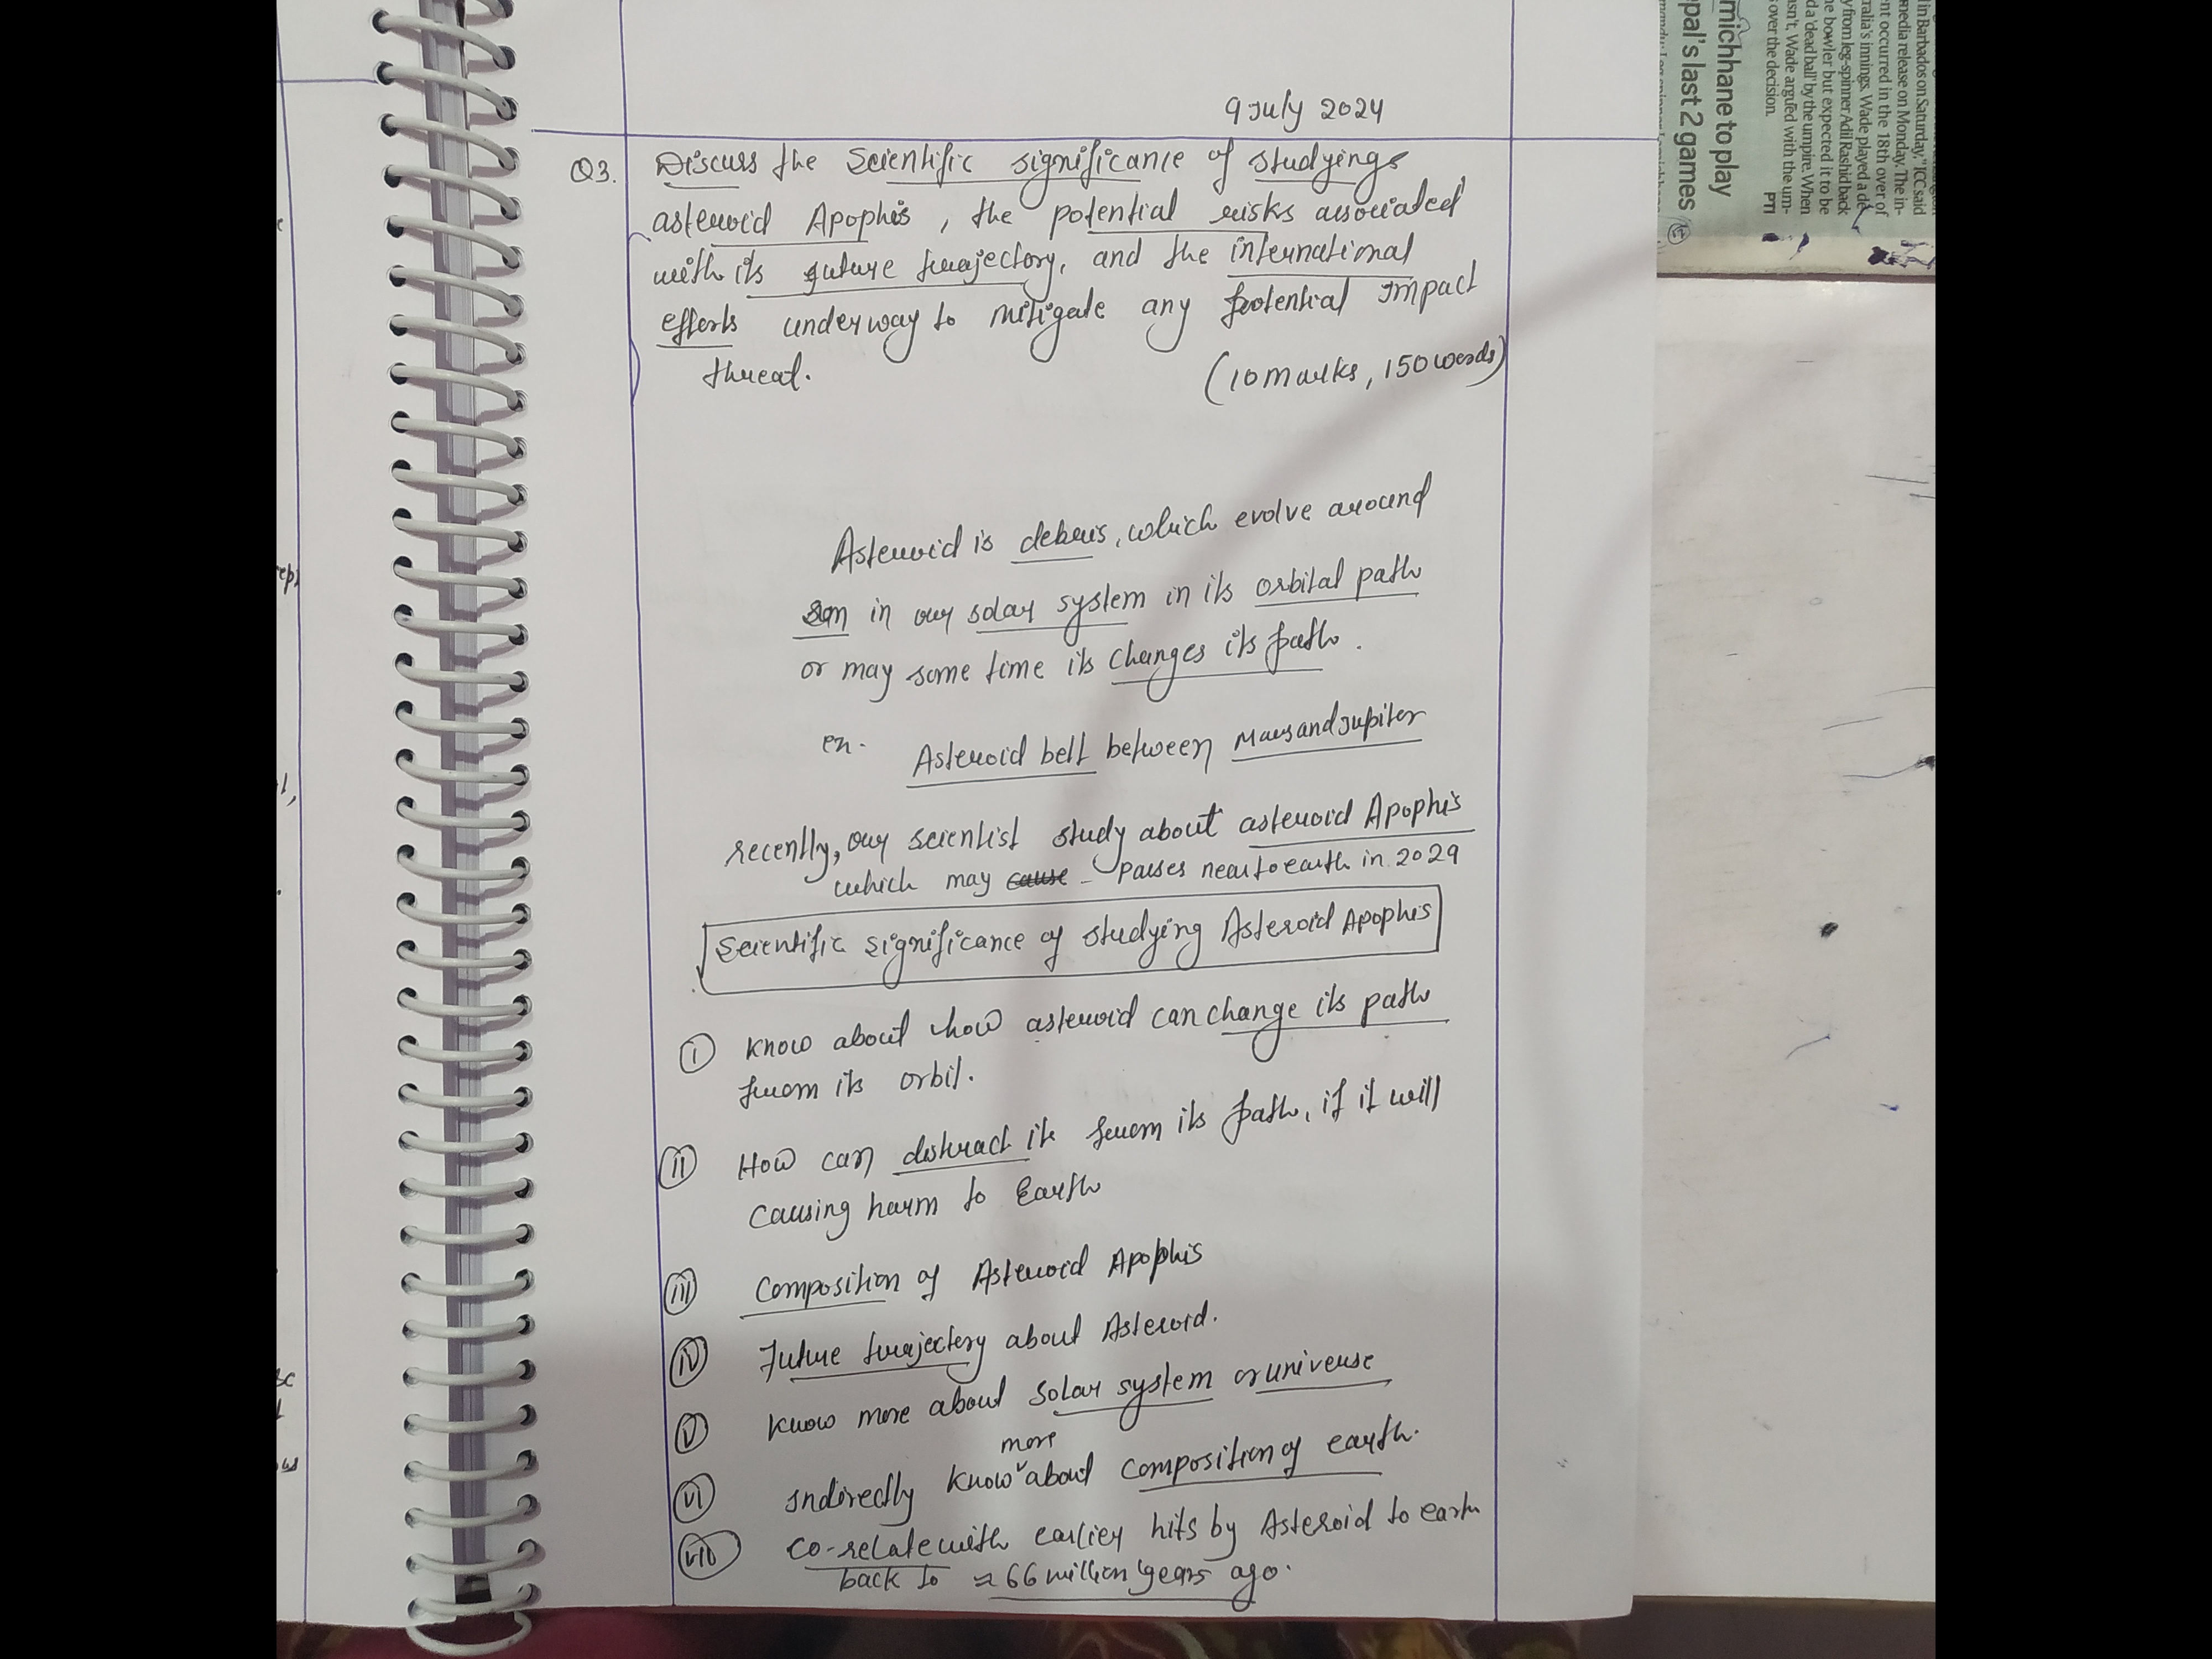 9 July 2024
Q3. Discuss the Scientific significance of studyings
asteroid Apophis, the potential risks associated
with its future trajectory, and the international
efforts underway to mitigate any potential Impact
threat. (10 marks, 150 words)
Asteroid is debris, which evolve around
sun in our solar system in its orbital path
or may some time its changes its path.
ex. Asteroid belt between Mars and Jupiter
recently, our scientist study about asteroid Apophis
which may cause passes near to earth in 2029
Scientific significance of studying Asteroid Apophis
(i) Know about how asteroid can change its path
from its orbit.
(ii) How can distract it from its path, if it will
causing harm to Earth
(iii) Composition of Asteroid Apophis
(iv) Future trajectory about Asteroid.
(v) Know more about Solar system or universe
(vi) Indirectly know more about composition of earth.
(vii) Co-relate with earlier hits by Asteroid to earth
back to ≈ 66 million years ago.
michhane to play
epal's last 2 games
in Barbados on Saturday," ICC said
media release on Monday. The in-
nt occurred in the 18th over of
ralia's innings. Wade played a de-
y from leg-spinner Adil Rashid back
he bowler but expected it to be
d a 'dead ball' by the umpire. When
asn't, Wade argued with the um-
over the decision.
PTI